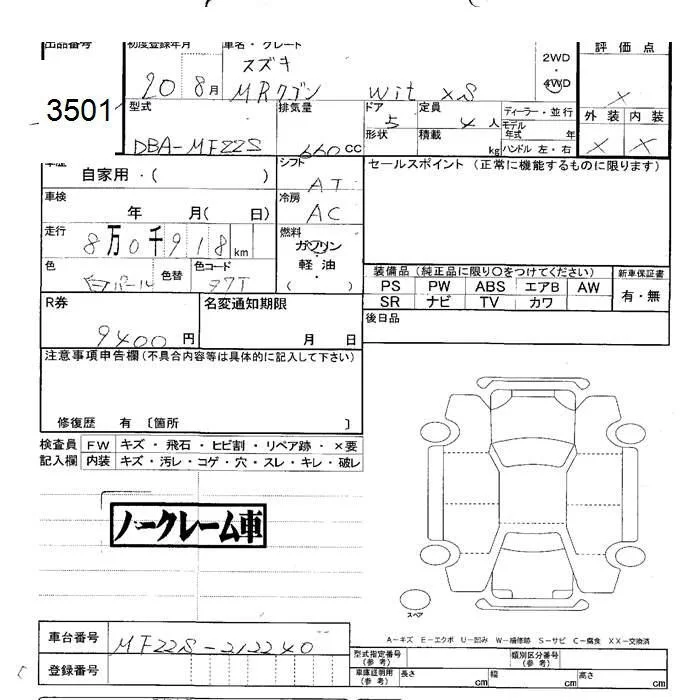 出品番号 初度登録年月 車名・グレード 2WD・4WD 評価点
3501 20 8月 スズキ MRワゴン wit XS X
型式 排気量 ドア 定員 ディーラー・並行 外装 内装
DBA-MF22S 660cc 5 4人 モデル年式 年 X X
形状 積載 kg ハンドル 左・右
車歴 シフト セールスポイント (正常に機能するものに限ります)
自家用・( ) AT
車検 冷房
年 月( 日) AC
走行 燃料
8万0千918km ガソリン
軽油
( ・ )
色 色替 色コード
白パール Z7T
装備品 (純正品に限り○をつけてください) 新車保証書
PS PW ABS エアB AW 有・無
SR ナビ TV カワ
R券 名変通知期限 後日品
9400円 月 日
注意事項申告欄(不具合内容等は具体的に記入して下さい)
修復歴 有 〔箇所 〕
検査員 FW キズ・飛石・ヒビ割・リペア跡・×要
記入欄 内装 キズ・汚レ・コゲ・穴・スレ・キレ・破レ
ノークレーム車
スペア
A-キズ E-エクボ U-凹み W-補修跡 S-サビ C-腐食 XX-交換済
車台番号 MF22S-212240
登録番号
型式指定番号(参考) 類別区分番号(参考)
車庫証明用(参考) 長さ cm 幅 cm 高さ cm